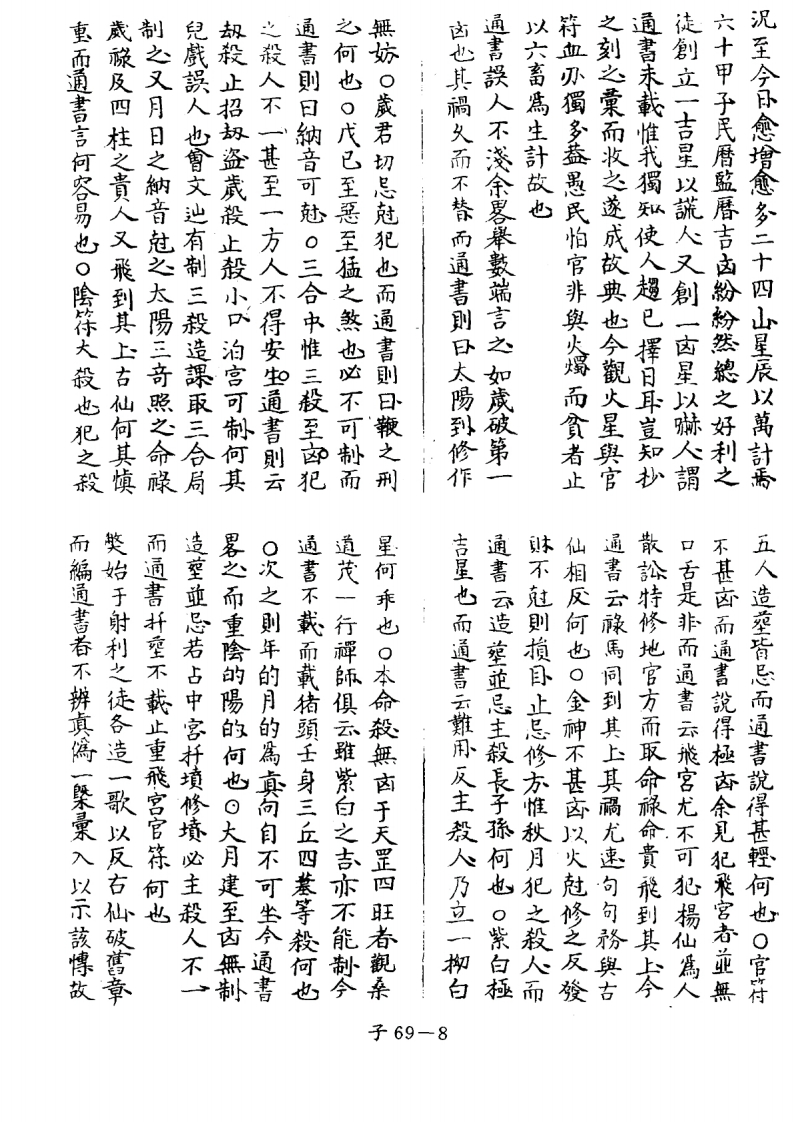 況至今日愈增愈多二十四山星辰以萬計焉
六十甲子民曆監曆吉凶紛紛然總之好利之
徒創立一吉星以謊人又創一凶星以嚇人謂
通書未載惟我獨知使人趨已擇日耳豈知抄
之刻之彙而收之遂成故典也今觀火星與官
符血刃獨多葢愚民怕官非與火燭而貧者止
以六畜爲生計故也
通書誤人不淺余畧舉數端言之如歲破第一
凶也其禍久而不替而通書則曰太陽到修作
無妨○歲君切忌尅犯也而通書則曰鞭之刑
之何也○戊已至惡至猛之煞也必不可制而
通書則曰納音可尅○三合中惟三殺至凶犯
之殺人不一甚至一方人不得安生通書則云
劫殺止招刼盜歲殺止殺小口泊宮可制何其
兒戲誤人也會文辿有制三殺造課取三合局
制之又月日之納音尅之太陽三奇照之命祿
歲祿及四柱之貴人又飛到其上古仙何其慎
重而通書言何容易也○陰符大殺也犯之殺
五人造塟皆忌而通書說得甚輕何也○官符
不甚凶而通書說得極凶余見犯飛宮者並無
口舌是非而通書云飛宮尤不可犯楊仙爲人
散訟特修地官方而取命祿命貴飛到其上今
通書云祿馬同到其上其禍尤速句句務與古
仙相反何也○金神不甚凶以火尅修之反發
財不尅則損目止忌修方惟秋月犯之殺人而
通書云造塟並忌主殺長子孫何也○紫白極
吉星也而通書云難用反主殺人乃立一拗白
星何乖也○本命殺無凶于天罡四旺者觀桑
道茂一行禪師俱云雖紫白之吉亦不能制今
通書不載而載猪頭壬身三丘四墓等殺何也
○次之則年的月的爲眞向自不可坐今通書
畧之而重陰的陽的何也○大月建至凶無制
造塟並忌若占中宮扦墳修墳必主殺人不一
而通書扦塟不載止重飛宮官符何也
獘始于射利之徒各造一歌以反古仙破舊章
而編通書者不辨眞僞一槩彙入以示該博故
子69－8